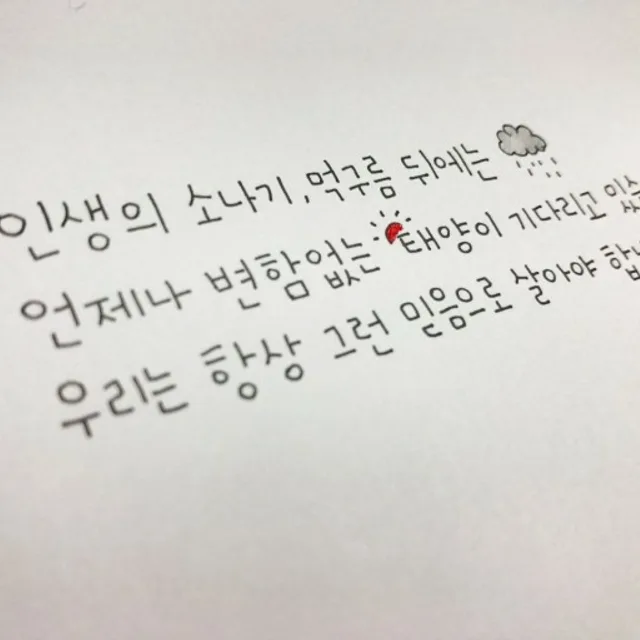 인생의 소나기, 먹구름 뒤에는
언제나 변함없는 태양이 기다리고 있
우리는 항상 그런 믿음으로 살아야 합